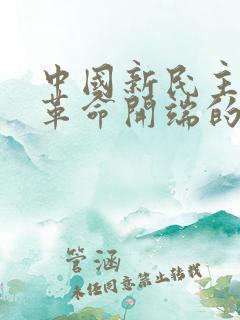 中國新民主
革命開端的
管涵
未经同意禁止转载